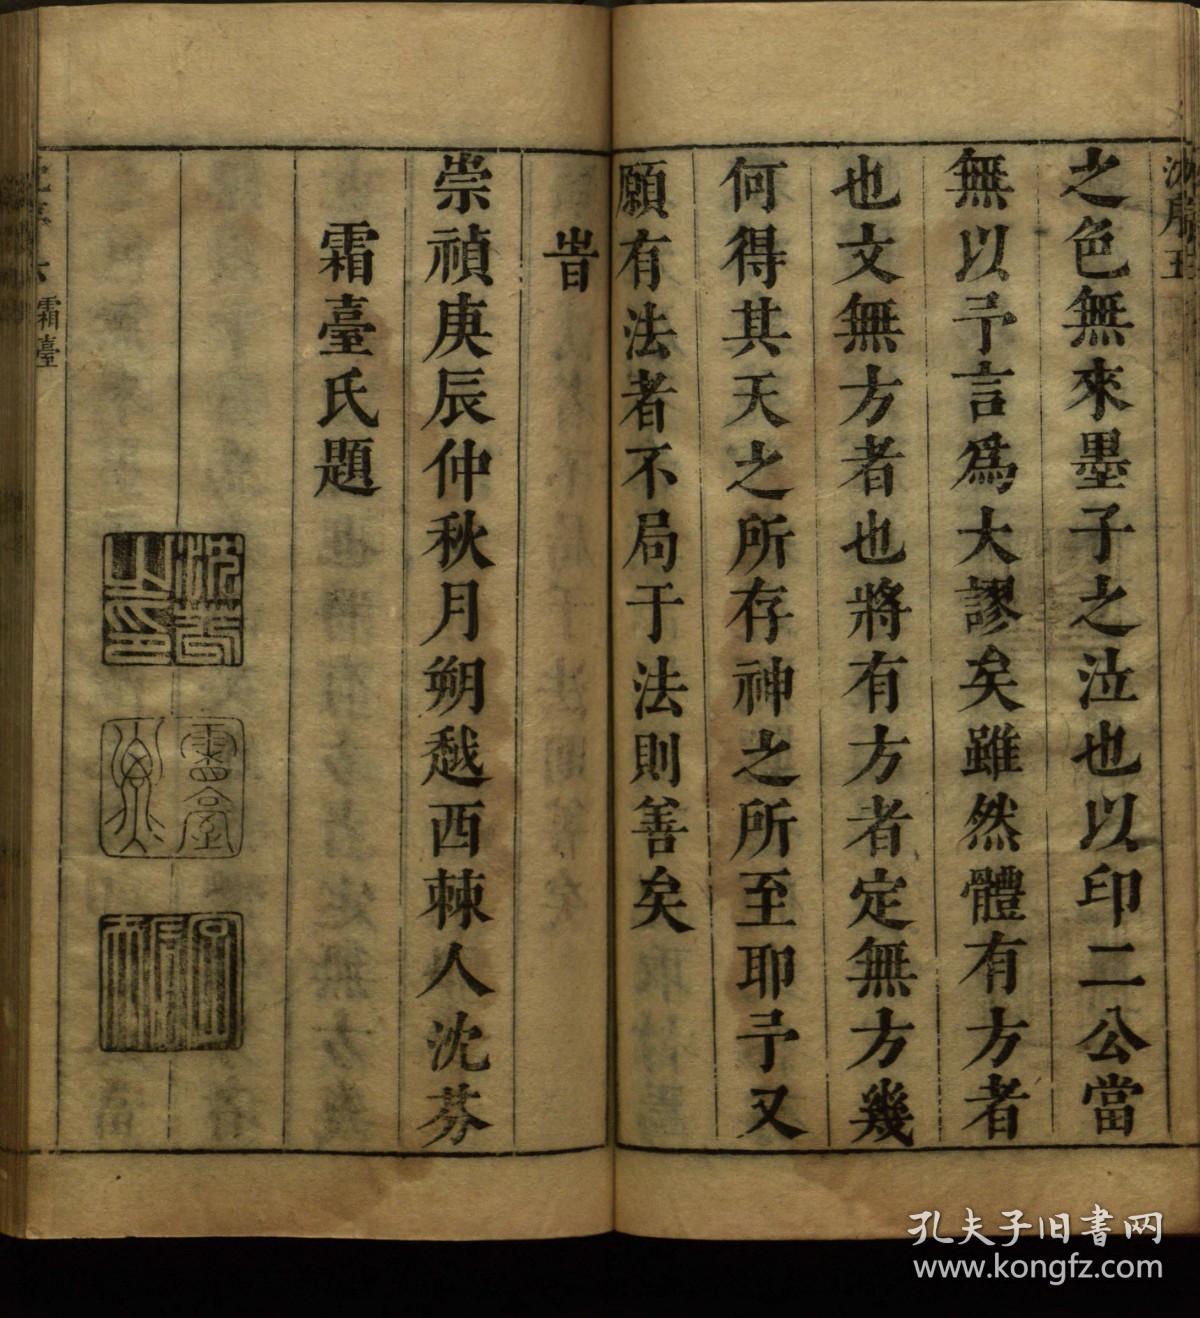 沈序五
之色無來墨子之泣也以印二公當
無以予言爲大謬矣雖然體有方者
也文無方者也將有方者定無方幾
何得其天之所存神之所至耶予又
願有法者不局于法則善矣
旹
崇禎庚辰仲秋月朔越西棘人沈芬
霜臺氏題
沈芬之印
霜臺
霜臺
孔夫子旧书网
www.kongfz.com